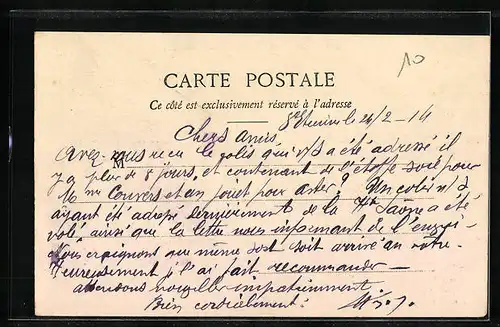 10
CARTE POSTALE
Ce côté est exclusivement réservé à l'adresse
St Etienne le 24/2-14
Chers Amis,
Avez-vous reçu le colis qui v/s a été adressé il
y a plus de 8 jours, et contenant de l'étoffe soie pour
M
Mme Convers et un jouet pour ? Un colis n/s
ayant été adressé dernièrement de la Hte Saône a été
volé ainsi que la lettre nous informant de l'envoi -
Nous craignons que même sort soit arrivé au votre.
Heureusement je l'ai fait recommander -
attendons nouvelles impatiemment
Bien cordialement.